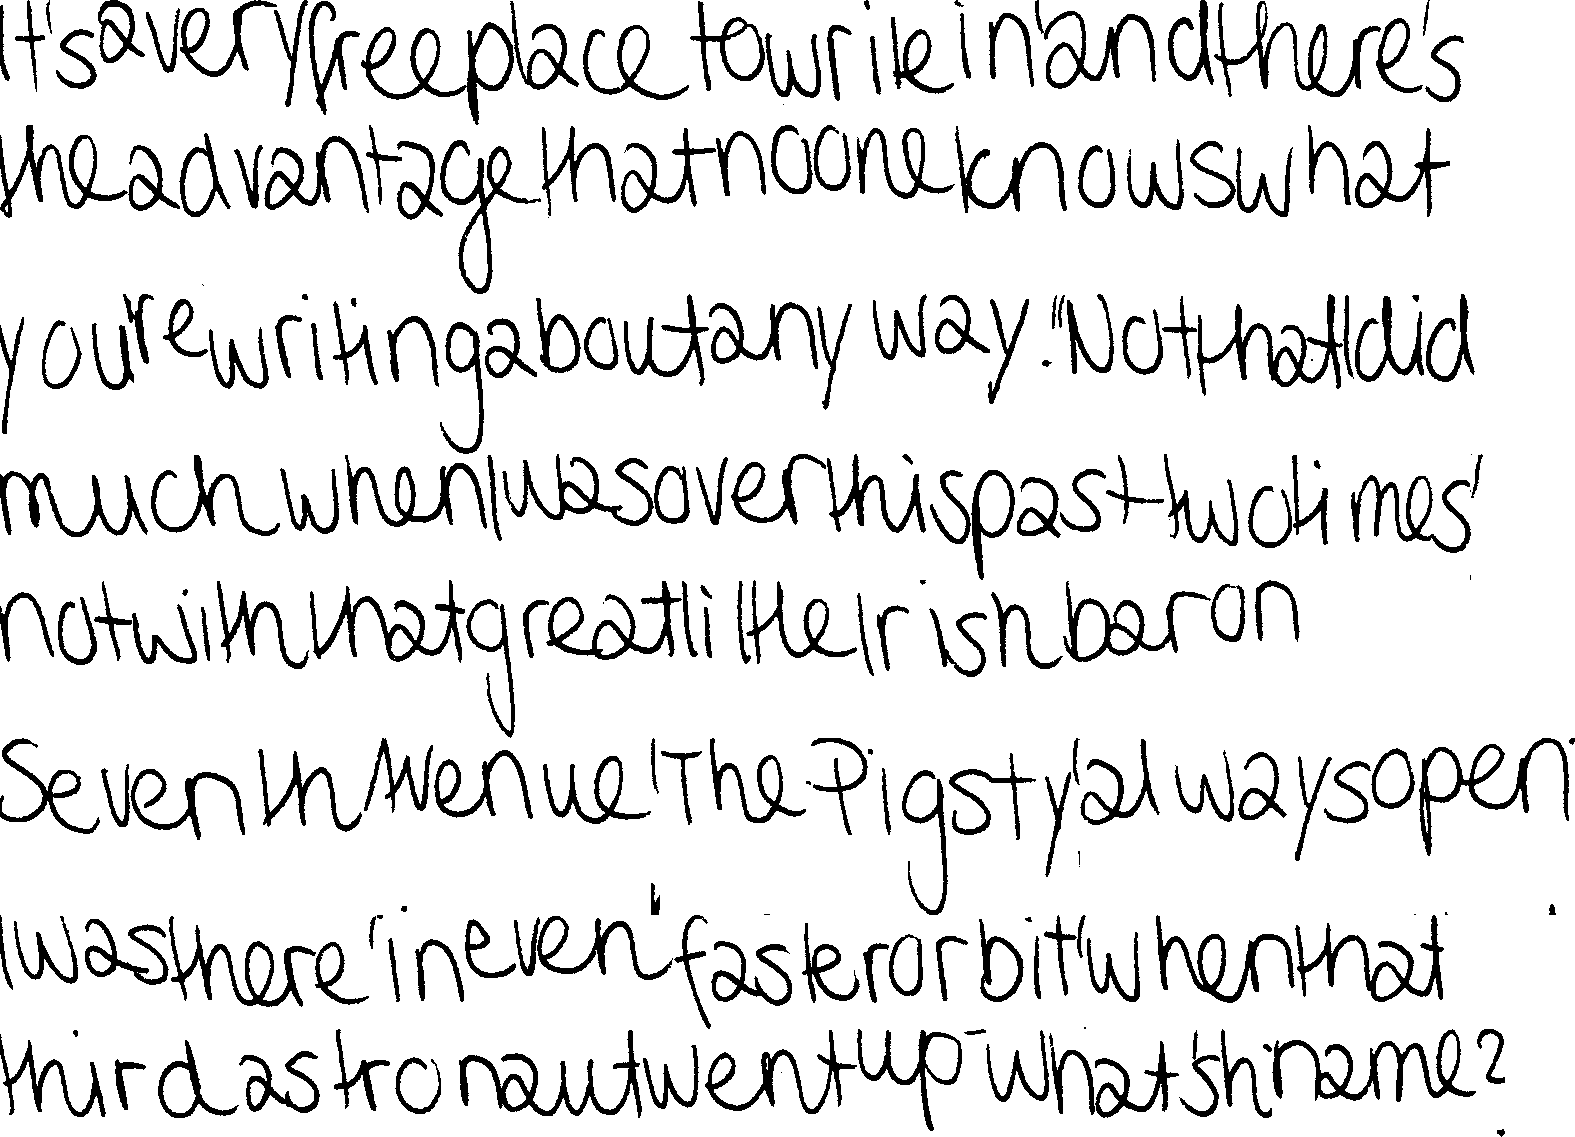 It's a very free place to write in' and there's
the advantage that no one knows what
you're writing about any way." Not that I did
much when I was over this past two times'
not with that great little Irish baron
Seventh Avenue! The Pigsty' always open
I was there 'in even' faster orbit' when that
third astronaut went up - what's h name?